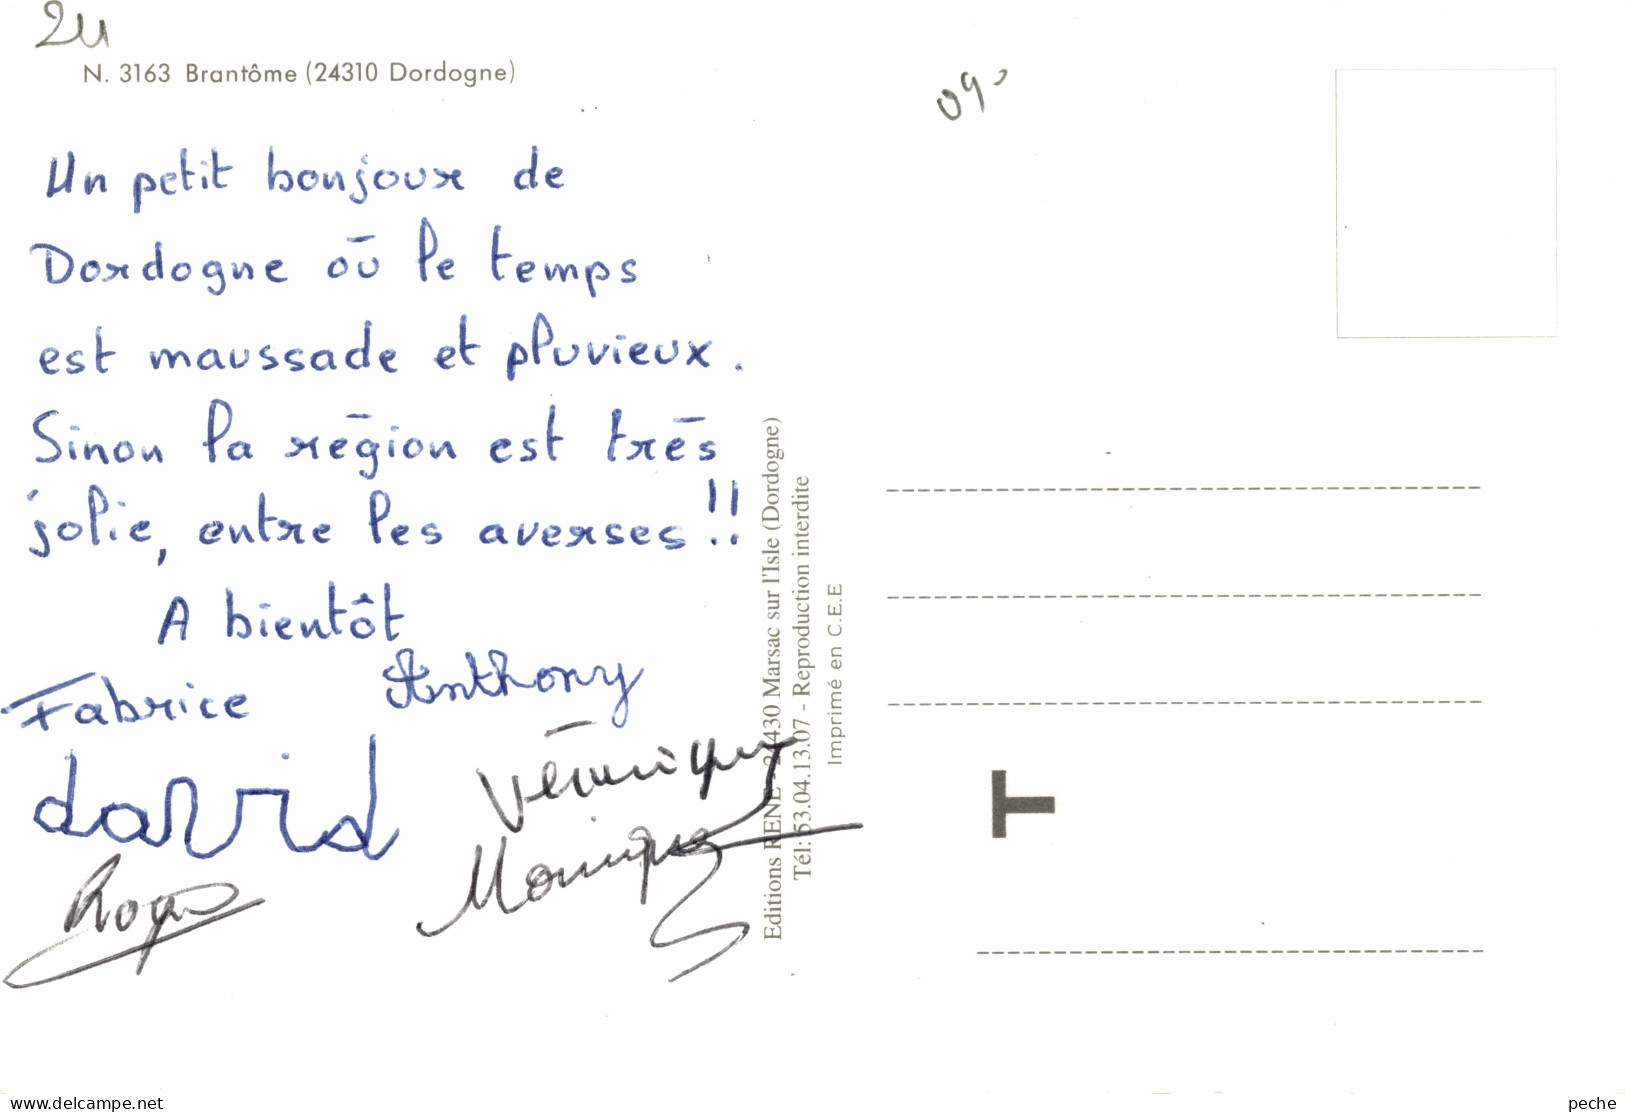 24
N. 3163 Brantôme (24310 Dordogne)
09-
Un petit bonjour de
Dordogne où le temps
est maussade et pluvieux.
Sinon la région est très
jolie, entre les averses !!
A bientôt
Fabrice Anthony
david Véronique
Roger Monique
Editions RENE - 24430 Marsac sur l'Isle (Dordogne)
Tél: 53.04.13.07 - Reproduction interdite
Imprimé en C.E.E
T
www.delcampe.net
peche